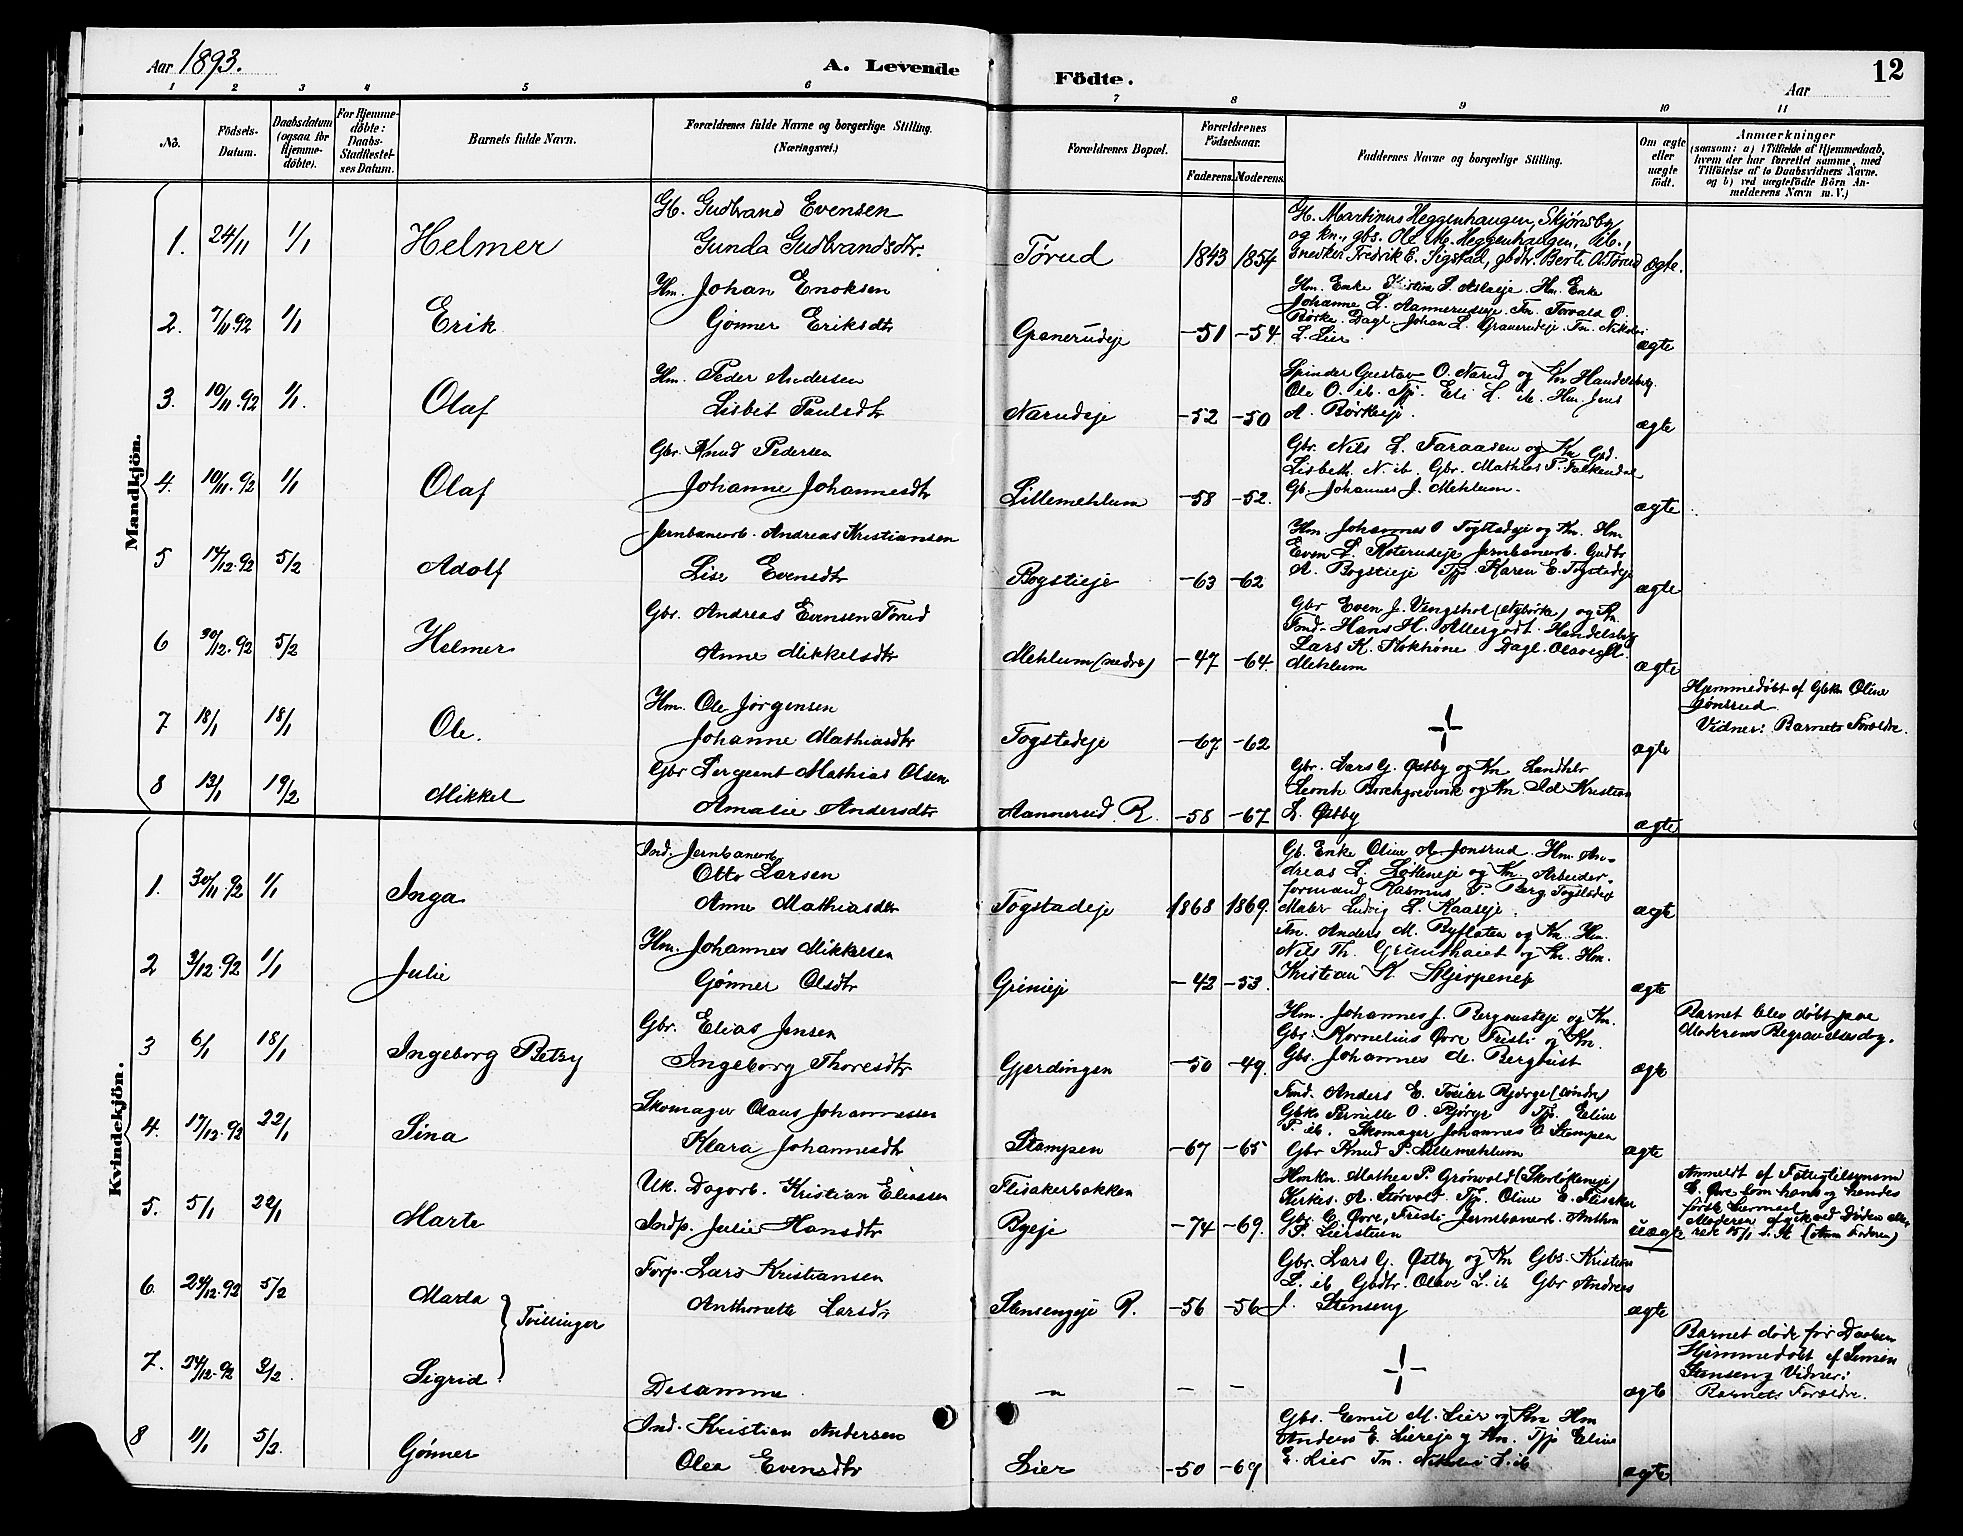 Aar 1893.
A. Levende
Födte.
Aar
12
1 2 3 4 5 6 7 8 9 10 11
No.
Födsels-Datum.
Daabsdatum (ogsaa for Hjemme-døbte).
For Hjemme-døbte: Daabs-Stadfæstelses Datum.
Barnets fulde Navn.
Forældrenes fulde Navne og borgerlige Stilling. (Næringsvei.)
Forældrenes Bopæl.
Forældrenes Födselsaar.
Faderens. Moderens.
Faddernes Navne og borgerlige Stilling.
Om ægte eller uægte født.
Anmærkninger
(saasom: a) i Tilfælde af Hjemmedaab, hvem der har forrettet samme, med Tilføielse af to Daabsvidners Navne, og b) ved uægtefödte Börn Anmelderens Navn m. V.)
Mandkjön.
1. 24/11 1/1 Helmer
G. Gudbrand Evensen
Gunda Gudbrandsdtr.
Tørud 1843 1854
G. Martinus Heggenhaugen, Skjønsby
og kn., gbs. Ole M. Heggenhaugen, ib.,
snedker Fredrik E. Sigstad, gbdtr. Berte O. Tørud
ægte.
2. 7/11.92 1/1 Erik
Hm. Johan Enoksen
Gønner Eriksdtr
Granerudeje -51 -54.
Hm. Enke Kirstia P. Aslaeje. Hm. Enke
Johanne L. Aannerudseje. Tn. Torvald O.
Børke. Dagl. Johan L. Granerudeje. Tn. Nikolai
L. Lier.
ægte
3. 10/11.92 1/1. Olaf
Hm. Peder Andersen
Lisbet Paulsdtr
Narudeje -52 -50
Spinder Gustav O. Narud og Kn Handelsbg.
Ole O. ib. Tpi. Eli L. ib. Hm. Jens
A. Børkeeje.
ægte
4. 10/11.92 1/1 Olaf
Gbr. Knud Pedersen
Johanne Johannesdtr
Lillemehlum -58 -52.
Gbr. Nils L. Faraasen og Kn Gbd.
Lisbeth N. ib. Gbr. Mathias P. Falkendal
Gb. Johannes J. Mehlum.
ægte
5 14/12.92 5/2 Adolf
Jernbanearb. Andreas Kristiansen
Lise Evensdtr
Bogstieje -63 -62
Hm Johannes O Togstadeje og Kn. Hm
Even L. Roterudeje Jernbanearb. Gudbr
A. Bogstieje Tpi. Karen E. Togstadeje
ægte
6 30/12.92 5/2 Helmer
Gbs. Andreas Evensen Torud
Anne Mikkelsdtr
Mehlum (nedre) -47 -64.
Gbr Even J. Vingshol (Nybørke) og K.
Fmd. Hans H. Allergodt. Handelsbg
Lars K. Kokhøne Dagl. Olavus M.
Mehlum
ægte
7 18/1 18/1 Ole.
Hm. Ole Jørgensen
Johanne Mathiasdtr
Togstadeje -67 -62
ægte
Hjemmedøbt af Gbkn Oline
Jønsrud.
Vidner: Barnets Forældre.
8 13/1 19/2 Mikkel
Gbr Sergeant Mathias Olsen
Amalie Andersdtr
Aannerud. R. -58 -67.
Gbr. Lars G. Østby og Kn Landhdlr
Leonh Borchgrevink og Kn. Sd Kristian
L. Østby
ægte
Kvindekjön.
1. 30/11.92 1/1 Inga
Ind. Jernbanearb
Otto Larsen
Anne Mathiasdtr
Togstadeje 1868 1869.
Gb. Enke Oline A Jonsrud. Hm. An-
dreas L. Løkkeneje og Kn. Arbeider-
formand Rasmus P. Berg Togstadeje
Maler Ludvig L. Kaaseje.
ægte
2 3/12.92 1/1 Julie
Hm. Johannes Mikkelsen
Gønner Olsdtr
Grinieje -42 -53.
Tn. Anders M. Byflaten og Kn. Hm.
Nils Th. Grinithaiet og Kn. Hm.
Kristian K. Skjerpeneje
ægte
3 6/1 18/1 Ingeborg Betsy
Gbr. Elias Jensen
Ingeborg Thoresdtr
Gjerdingen -50 -49.
Hm. Johannes J. Bergousteje og Kn.
Gbr. Kornelius Øvre Fristi og Kn.
Gbs. Johannes de. Bergtust
ægte
Barnet blev døbt paa
Moderens Begravelsesdag.
4. 17/12.92 22/1 Sina
Skomager Olaus Johannessen
Klara Johannesdtr
Stampen -67 -65
Fmd. Anders E. Toeiter Bjørge (søndre)
Gbkn Pernille O. Bjørge Tpi. Eline
P. ib. Skomager Johannes O Stampen
Gbr Knud P. Lillemehlum
ægte
5. 5/1 22/1 Marte
Uk. Dagarb. Kristian Eliassen
Indp. Julie Hansdtr
Flisakerbakken
Byeje -74 -69.
Hmkn. Mathea P. Grønvold (Skorløkeneje)
Kirkes. A. Storvold. Tpi. Oline E. Flisaker
Gbr. E. Øvre, Fristi. Jernbanearb. Anthon
P. Lierstuen
uægte
Anmeldt af Fattigtilsynsm
E. Øvre som hans og hendes
første Leiermaal
Moderen afgik ved Døden alle-
rede 15/1 d. A. (Anm Faderen)
6. 24/12.92 5/2 Marta
Tvillinger
Forp. Lars Kristiansen
Anthonette Larsdtr
Stensengeje R. -56 -56
Gbr. Lars G. Østby og Kn Gbs. Kristian
L. ib Gbdtr. Olave L. ib Gbr Andreas
J. Stenseng
ægte
7. 24/12.92 3/2. Sigrid
Desamme.
" - -
ægte
Barnet døde før Daaben
Hjemmedøbt af Simen
Stenseng Vidner:
Barnets Forældre.
8 11/1 5/2. Gønner
Ind. Kristian Andersen
Olea Evensdtr
Lier -50 -69
Gbs. Emil M. Lier og Kn Hm
Anders E. Liereje og Kn. Tpi Eline
E. Lier Tn. Nikolai L. ib
ægte